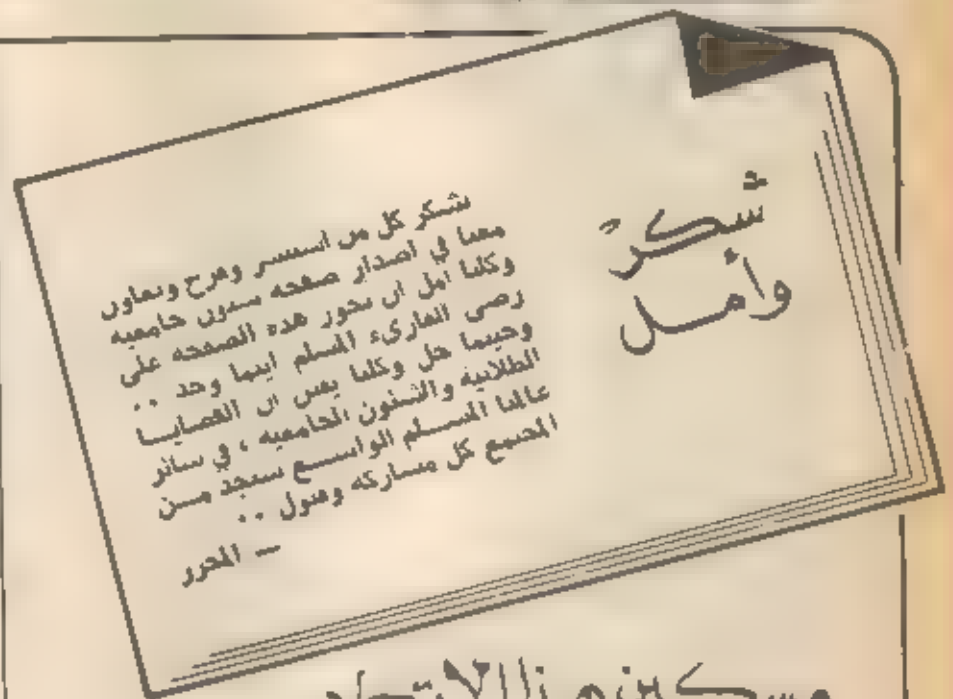 شكرٌ
وأمل
نشكر كل من استبشر وفرح وتعاون
معنا في اصدار صفحة شئون جامعية
وكلنا امل ان تحوز هذه الصفحة على
رضى القارىء المسلم اينما وجد ..
وحيثما حل وكلنا يقين ان القضايا
الطلابية والشئون الجامعية ، في سائر
عالمنا المسلم الواسع ستجد من
الجميع كل مشاركة وقبول ..
— المحرر